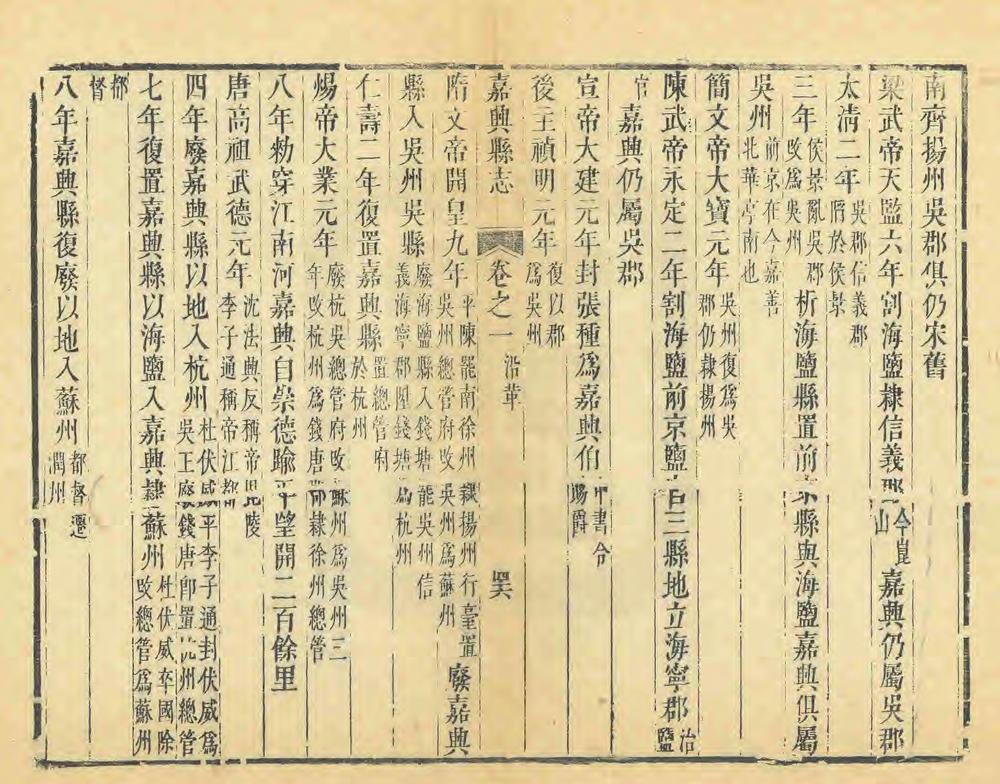 南齊揚州吳郡俱仍宋舊
梁武帝天監六年割海鹽隷信義郡今崑山嘉興仍屬吳郡
太淸二年吳郡信義郡陷於侯景
三年侯景亂吳郡改爲吳州析海鹽縣置前京縣與海鹽嘉興俱屬
吳州前京在今嘉善北華亭南也
簡文帝大寶元年吳州復爲吳郡仍隷揚州
陳武帝永定二年割海鹽前京鹽官三縣地立海寧郡治鹽
官嘉興仍屬吳郡
宣帝大建元年封張種爲嘉興伯中書令賜爵
後主禎明元年復以郡爲吳州
嘉興縣志 卷之一 沿革 四六
隋文帝開皇九年平陳罷南徐州隷揚州行臺置吳州總管府改吳州爲蘇州廢嘉興
縣入吳州吳縣廢海鹽縣入錢塘罷吳州信義海寧郡陞錢塘爲杭州
仁壽二年復置嘉興縣置總管府於杭州
煬帝大業元年廢杭吳總管府改蘇州爲吳州三年改杭州爲錢唐郡隷徐州總管
八年勑穿江南河嘉興自崇德踰平望開二百餘里
唐高祖武德元年沈法興反稱帝毘陵李子通稱帝江都
四年廢嘉興縣以地入杭州杜伏威平李子通封伏威爲吳王廢錢唐郡置杭州總管
七年復置嘉興縣以海鹽入嘉興隷蘇州杜伏威卒國除改總管爲蘇州
都督
八年嘉興縣復廢以地入蘇州都督遷潤州